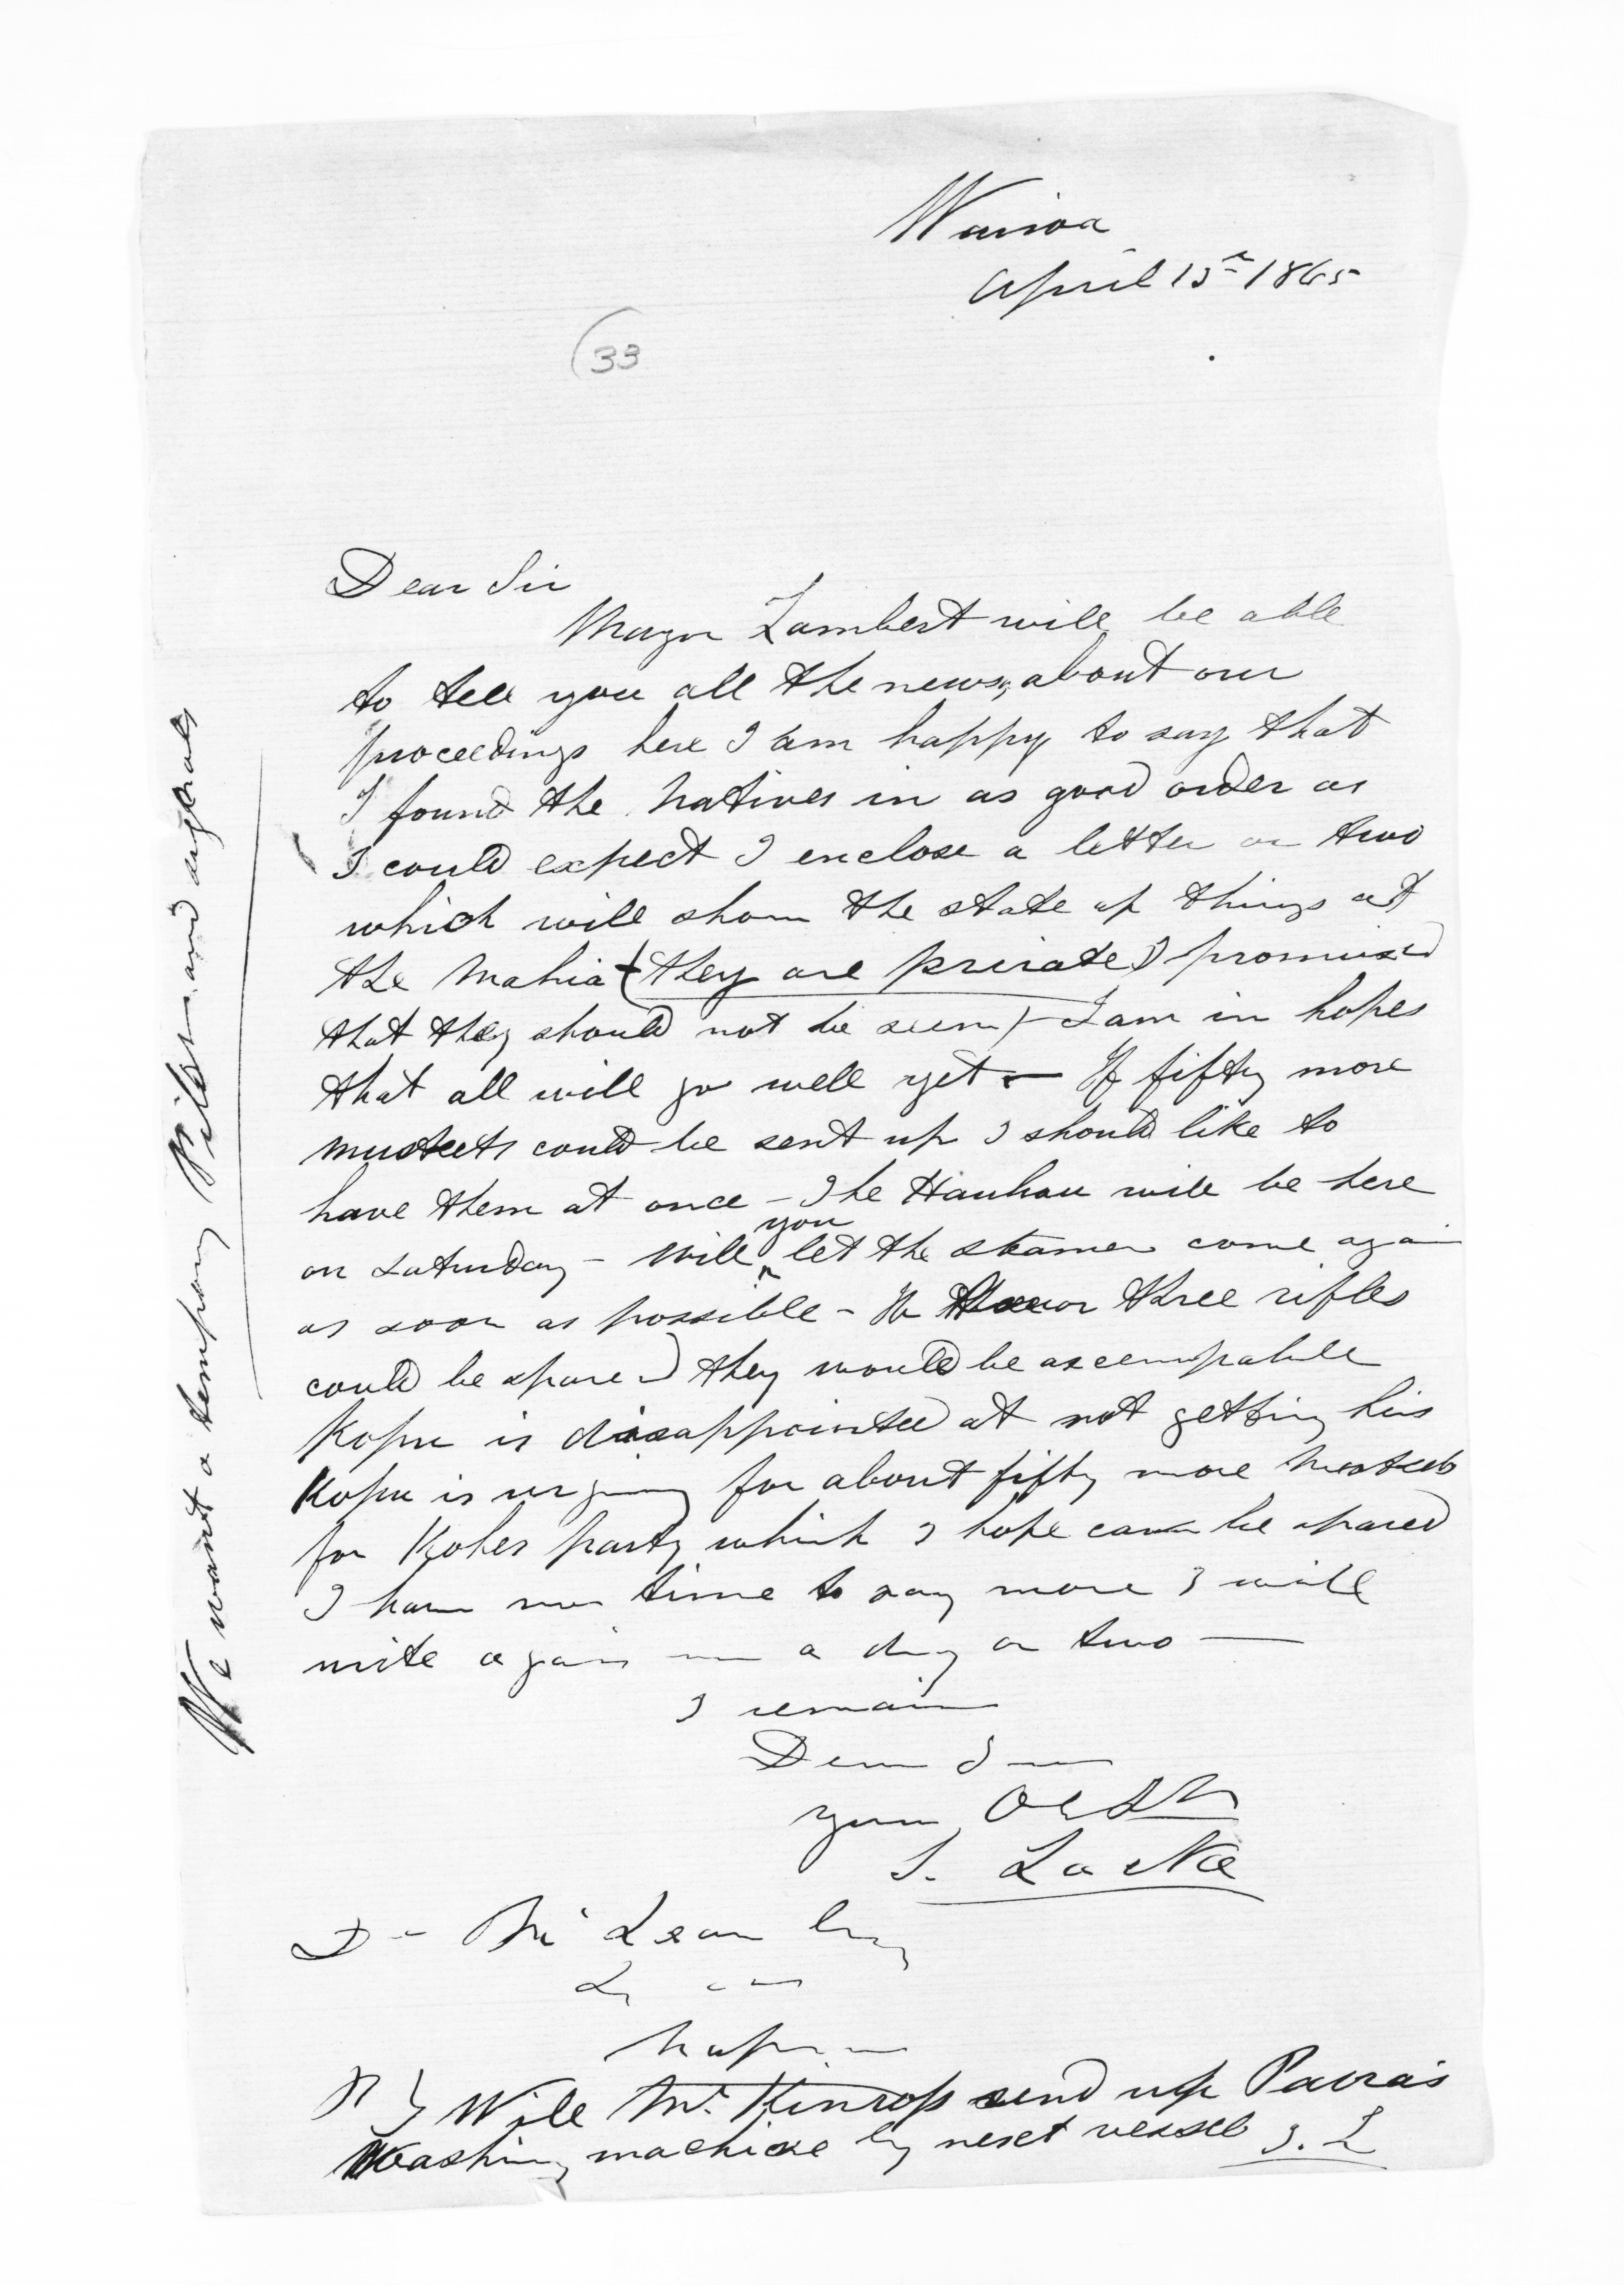 Wairoa
April 13th 1865
(33
Dear Sir
Major Lambert will be able
to tell you all the news, about our
proceedings here I am happy to say that
I found the Natives in as good order as
I could expect I enclose a letter or two
which will show the state of things at
the Mahia (they are private) I promised
that they should not be seen) - I am in hopes
that all will go well yet - If fifty more
muskets could be sent up I should like to
have them at once - The Hauhau will be here
on Saturday - Will you let the steamer come again
as soon as possible - If or three rifles
could be spared they would be
Kopu is disappointed at not getting his
Kopu is urging for about fifty more muskets
for Kohes party which I hope can be spared
I have no time to say more I will
write again in a day or two —
I remain
Dear Sir
your Obt St
S. Locke
D - McLean Esq
Napier
P S Will Mr. Kinross send up Paora's
Washing machine by next vessel S. L
We want a temporary and